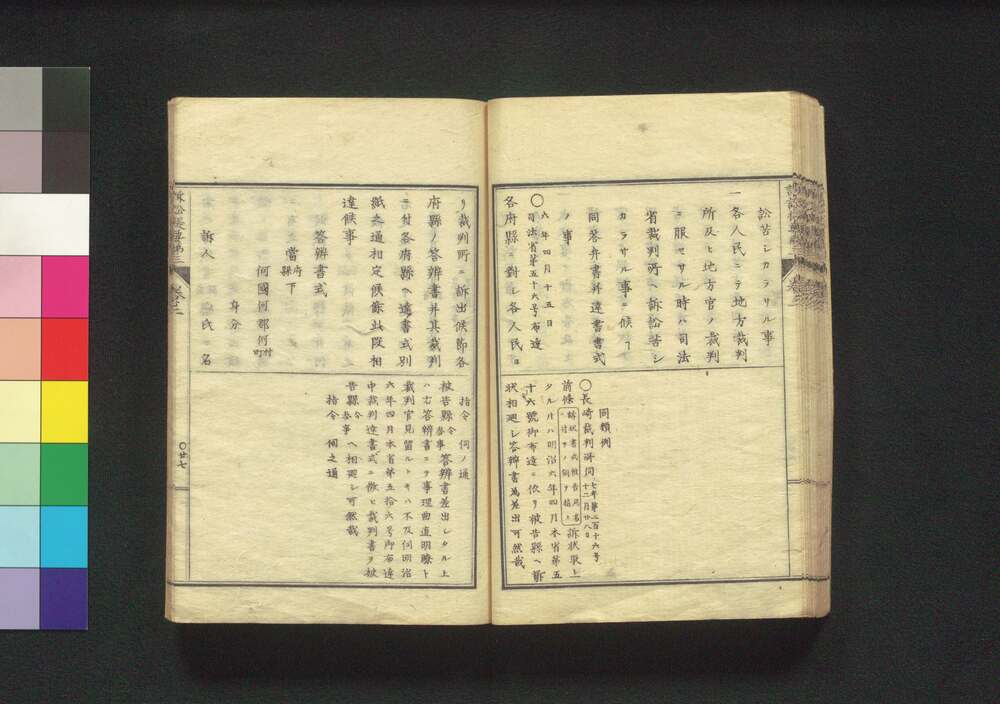 訟苦シカラサル事
一各人民ニテ地方裁判
所及ヒ地方官ノ裁判
ニ服セサル時ハ司法
省裁判所ヘ訴訟苦シ
カラサル事ニ候ヿ
同答弁書并達書書式
ノ事
六年四月十五日
〇司法省第五十六号布達
各府縣ニ對シ各人民ヨ
同類例
〇長崎裁判所伺七年第二百十六号
十二月廿八日
前條
訴状敷上
タル片ハ明治六年四月本省第五
十六號御布達ニ依リ被告縣ヘ訴
状相廻シ答辨書為差出可然哉
リ裁判所ニ訴出候節各
府縣ノ答辨書并其裁判
ニ付各府縣ヘ達書式別
紙之通相定候條此段相
達候事
答辨書式
當府縣下
何國何郡何村町
身分
訴人 氏名
指令 伺ノ通
被告縣令参事答辨書差出シタル上
ハ右答辨書ニヲ事理曲直明瞭ト
裁判官見留ルトキハ不及伺明治
六年四月本省第五拾六号御布達
中裁判達書式ニ傚ヒ裁判書ヲ被
告縣令参事ヘ相廻シ可然哉
指令 伺之通
〇廿七